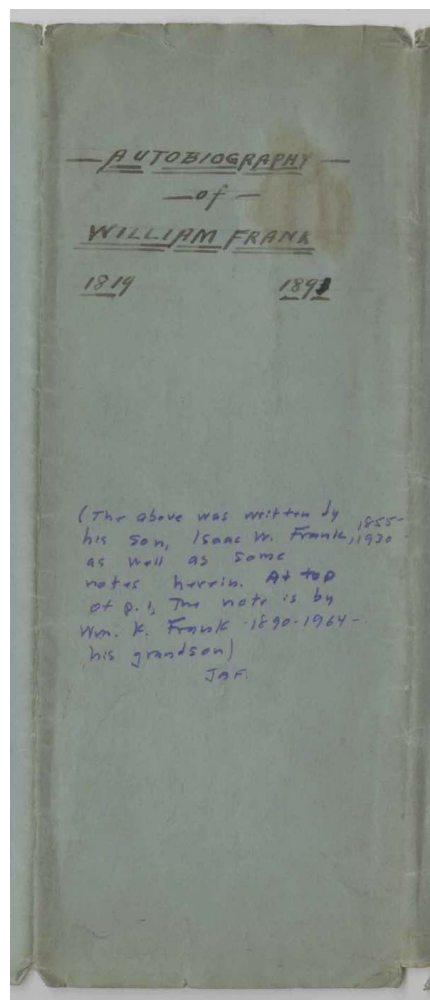 — AUTOBIOGRAPHY —
— of —
WILLIAM FRANK
1819 1891
(The above was written by
his son, Isaac W. Frank, 1855-
1930
as well as some
notes herein. At top
of p. 1, The note is by
Wm. K. Frank -1890-1964-
his grandson)
JAF.